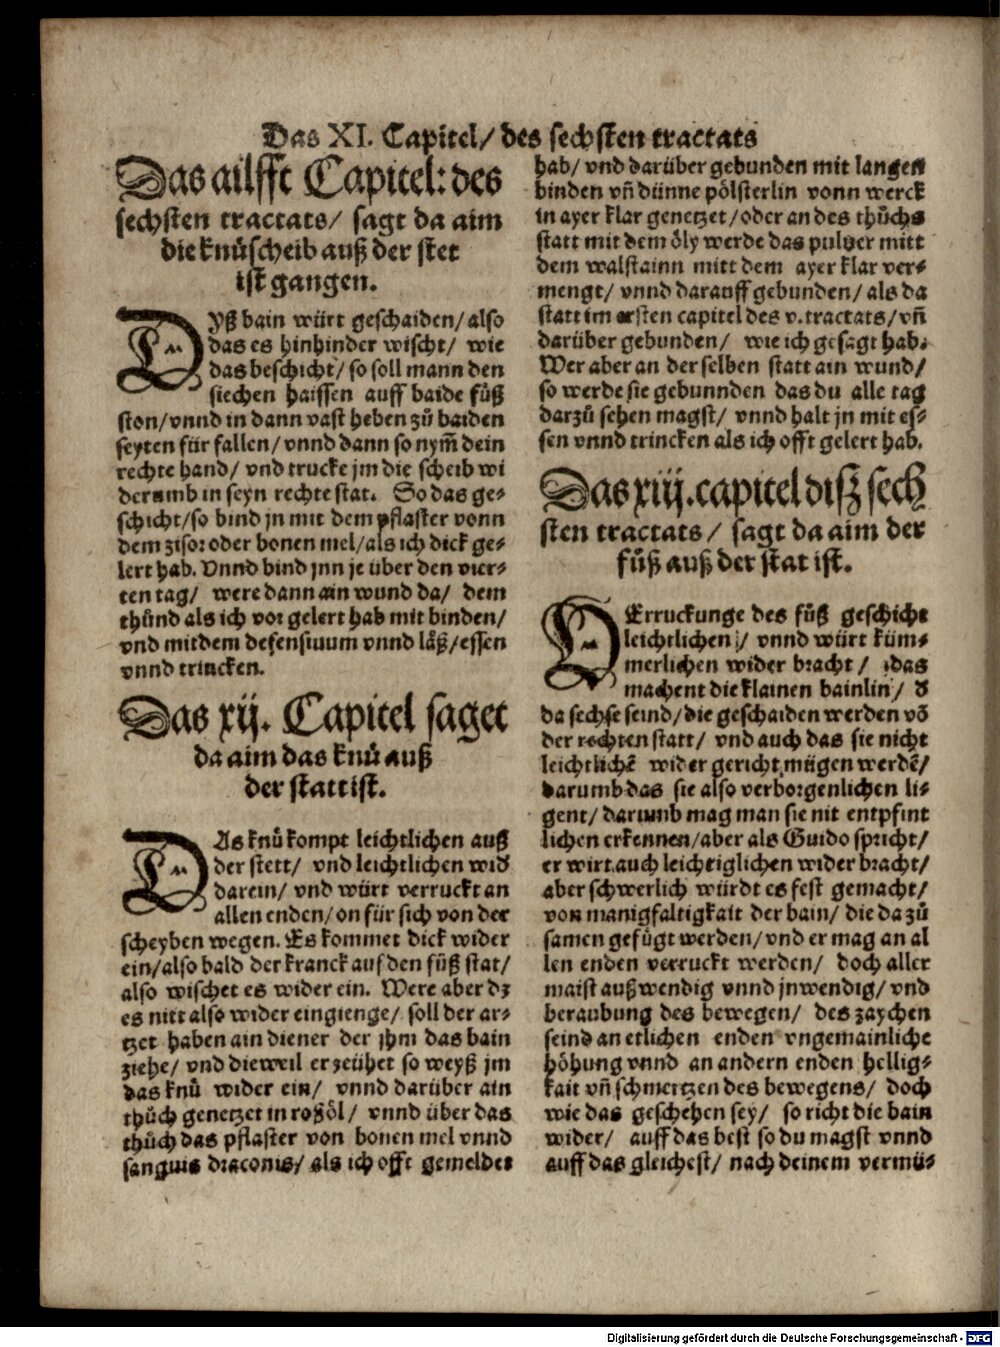 Das XI. Capitel/ des sechsten tractats
Das ailfft Capitel: des
sechsten tractats/ sagt da aim
die knuͤscheib auß der stet
ist gangen.
DYß bain würt geschaiden/ also
das es hinhinder wischt/ wie
das beschicht/ so soll mann den
siechen haissen auff baide fuͤß
ston/ vnnd in dann vast heben zuͦ baiden
seyten für fallen/ vnnd dann so nym̃ dein
rechte hand/ vnd trucke jm die scheib wi
derumb in seyn rechte stat. So das ge⸗
schicht/ so bind jn mit dem pflaster vonn
dem ziser oder bonen mel/ als ich dick ge⸗
lert hab. Vnnd bind jnn je über den vier⸗
ten tag/ were dann ain wund da/ dem
thuͦnd als ich vor gelert hab mit binden/
vnd mitdem defensiuum vnnd läß/ essen
vnnd trincken.
Das xij. Capitel saget
da aim das knuͤ auß
der statt ist.
DAs knuͤ kompt leichtlichen auß
der stett/ vnd leichtlichen wid̕
darein/ vnd würt verruckt an
allen enden/ on für sich von der
scheyben wegen. Es kommet dick wider
ein/ also bald der kranck auf den fuͦß stat/
also wischet es wider ein. Were aber dz
es nitt also wider eingienge/ soll der ar⸗
tzet haben ain diener der jhm das bain
ziehe/ vnd dieweil er zeühet so weyß jm
das knuͤ wider ein/ vnnd darüber ain
thuͦch genetzet in roßöl/ vnnd über das
thuͦch das pflaster von bonen mel vnnd
sanguis draconis/ als ich offt gemeldet
hab/ vnd darüber gebunden mit langen
binden vñ dünne pölsterlin vonn werck
in ayer klar genetzet/ oder an des thuͦchs
statt mit dem öly werde das pulver mitt
dem walstainn mitt dem ayer klar ver⸗
mengt/ vnnd darauff gebunden/ als da
statt im ersten capitel des v. tractats/ vñ
darüber gebunden/ wie ich gesagt hab.
Wer aber an der selben statt ain wund/
so werde sie gebunnden das du alle tag
darzuͦ sehen magst/ vnnd halt jn mit es⸗
sen vnnd trincken als ich offt gelert hab.
Das xiij. capitel disz sech
sten tractats/ sagt da aim der
fuͦß auß der stat ist.
VErruckunge des fuͦß geschicht
leichtlichen/ vnnd würt küm⸗
merlichen wider bracht/ das
machent die klainen bainlin/ d̕
da sechse seind/ die geschaiden werden võ
der rechten statt/ vnd auch das sie nicht
leichtlichẽ wider gericht mügen werdẽ/
darumb das sie also verborgenlichen li⸗
gent/ darumb mag man sie nit entpfint
lichen erkennen/ aber als Guido spricht/
er wirt auch leichtiglichen wider bracht/
aber schwerlich würdt es fest gemacht/
von manigfaltigkait der bain/ die da zuͦ
samen gefuͤgt werden/ vnd er mag an al
len enden verruckt werden/ doch aller
maist außwendig vnnd jnwendig/ vnd
beraubung des bewegen/ des zaychen
seind an etlichen enden vngemainliche
höhung vnnd an andern enden hellig⸗
kait vñ schmertzen des bewegens/ doch
wie das geschehen sey/ so richt die bain
wider/ auff das best so du magst vnnd
auff das gleichest/ nach deinem vermü⸗
Digitalisierung gefördert durch die Deutsche Forschungsgemeinschaft - DFG